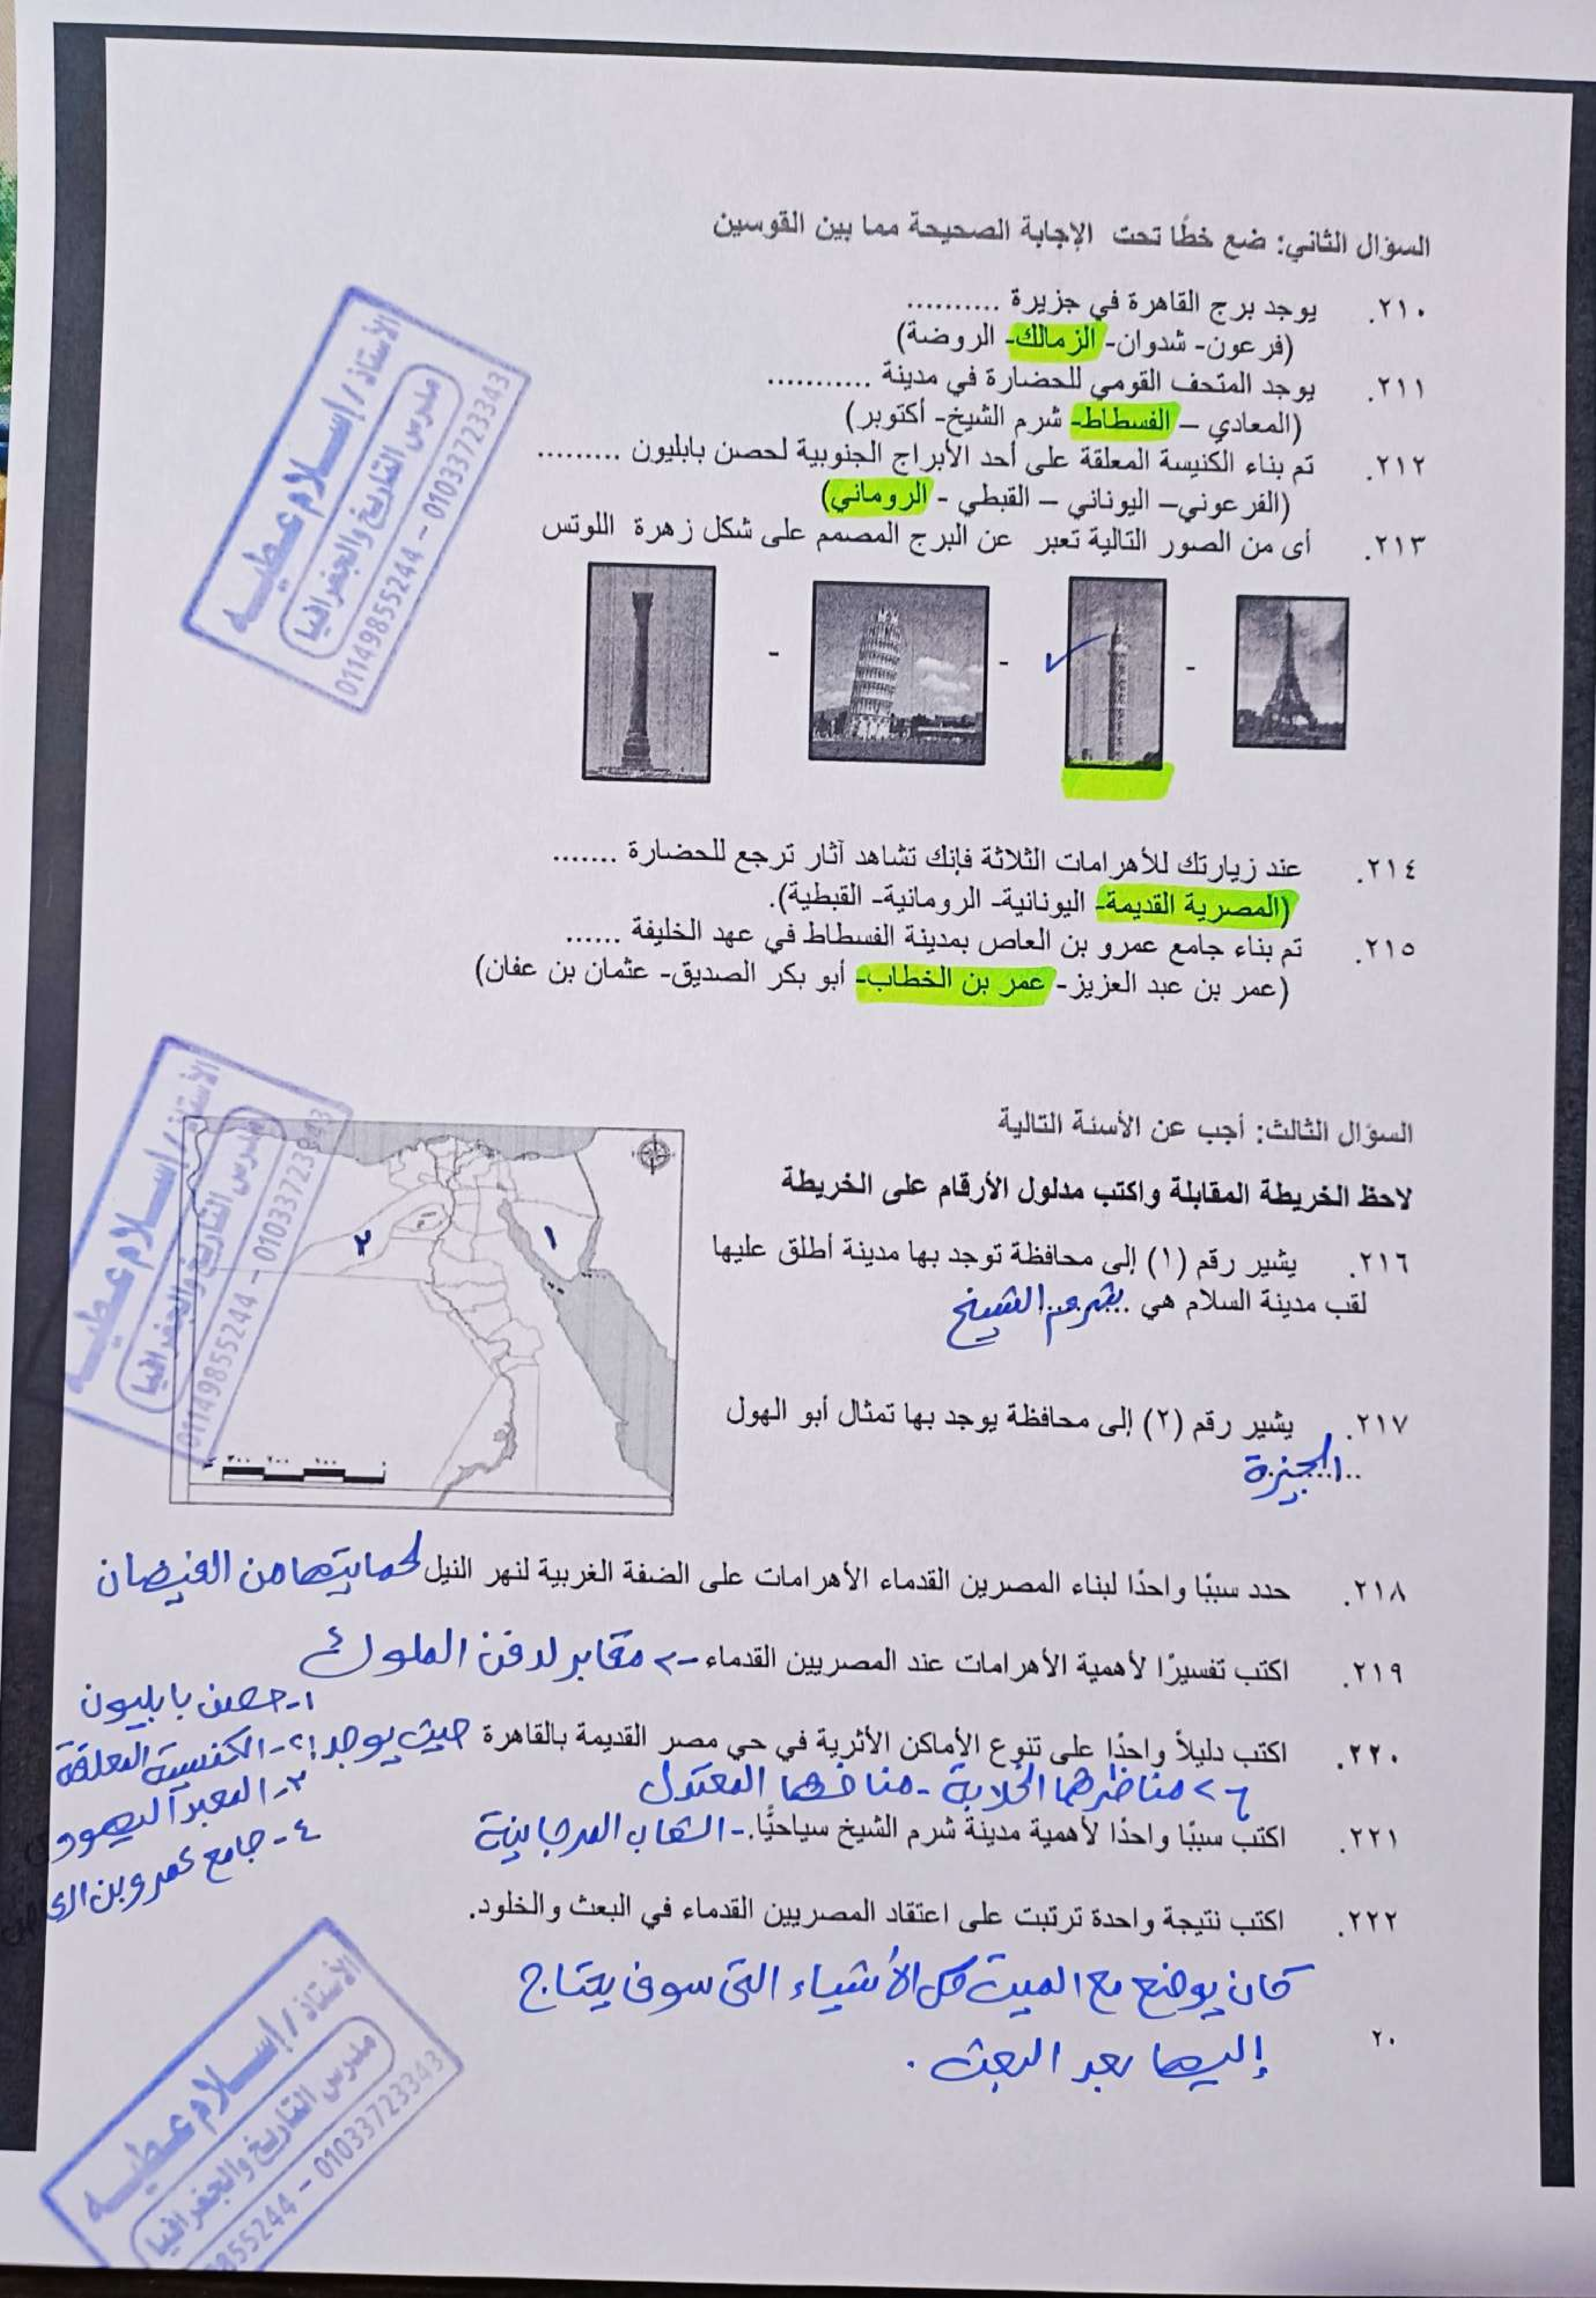 السؤال الثاني: ضع خطًا تحت الإجابة الصحيحة مما بين القوسين
٢١٠. يوجد برج القاهرة في جزيرة ..........
(فرعون- شدوان- الزمالك- الروضة)
٢١١. يوجد المتحف القومي للحضارة في مدينة ...........
(المعادي – الفسطاط- شرم الشيخ- أكتوبر)
٢١٢. تم بناء الكنيسة المعلقة على أحد الأبراج الجنوبية لحصن بابليون .........
(الفرعوني– اليوناني – القبطي - الروماني)
٢١٣. أى من الصور التالية تعبر عن البرج المصمم على شكل زهرة اللوتس
- - -
٢١٤. عند زيارتك للأهرامات الثلاثة فإنك تشاهد آثار ترجع للحضارة .......
(المصرية القديمة- اليونانية- الرومانية- القبطية).
٢١٥. تم بناء جامع عمرو بن العاص بمدينة الفسطاط في عهد الخليفة ......
(عمر بن عبد العزيز- عمر بن الخطاب- أبو بكر الصديق- عثمان بن عفان)
السؤال الثالث: أجب عن الأسئة التالية
لاحظ الخريطة المقابلة واكتب مدلول الأرقام على الخريطة
١
٢
٣٠٠ ٢٠٠ ١٠٠ ٠
٢١٦. يشير رقم (١) إلى محافظة توجد بها مدينة أطلق عليها
لقب مدينة السلام هي .. شرم الشيخ
٢١٧. يشير رقم (٢) إلى محافظة يوجد بها تمثال أبو الهول
..الجيزة
٢١٨. حدد سببًا واحدًا لبناء المصرين القدماء الأهرامات على الضفة الغربية لنهر النيل لحمايتها من الفيضان
٢١٩. اكتب تفسيرًا لأهمية الأهرامات عند المصريين القدماء -> مقابر لدفن الملوك
٢٢٠. اكتب دليلاً واحدًا على تنوع الأماكن الأثرية في حي مصر القديمة بالقاهرة حيث يوجد:
١- حصن بابليون
٢- الكنسية المعلقة
٣- المعبد اليهودى
٤- جامع عمرو بن
مناظرها الخلابة - مناخها المعتدل
٢٢١. اكتب سببًا واحدًا لأهمية مدينة شرم الشيخ سياحيًّا. - الشعاب المرجانية
٢٢٢. اكتب نتيجة واحدة ترتبت على اعتقاد المصريين القدماء في البعث والخلود.
كان يوضع مع الميت كل الأشياء التى سوف يحتاج
إليها بعد البعث .
٢٠
الأستاذ / إسلام عطيه
مدرس التاريخ والجغرافيا
01149855244 - 01033723343
الأستاذ / إسلام عطيه
مدرس التاريخ والجغرافيا
01149855244 - 01033723343
الأستاذ / إسلام عطيه
مدرس التاريخ والجغرافيا
9855244 - 01033723343